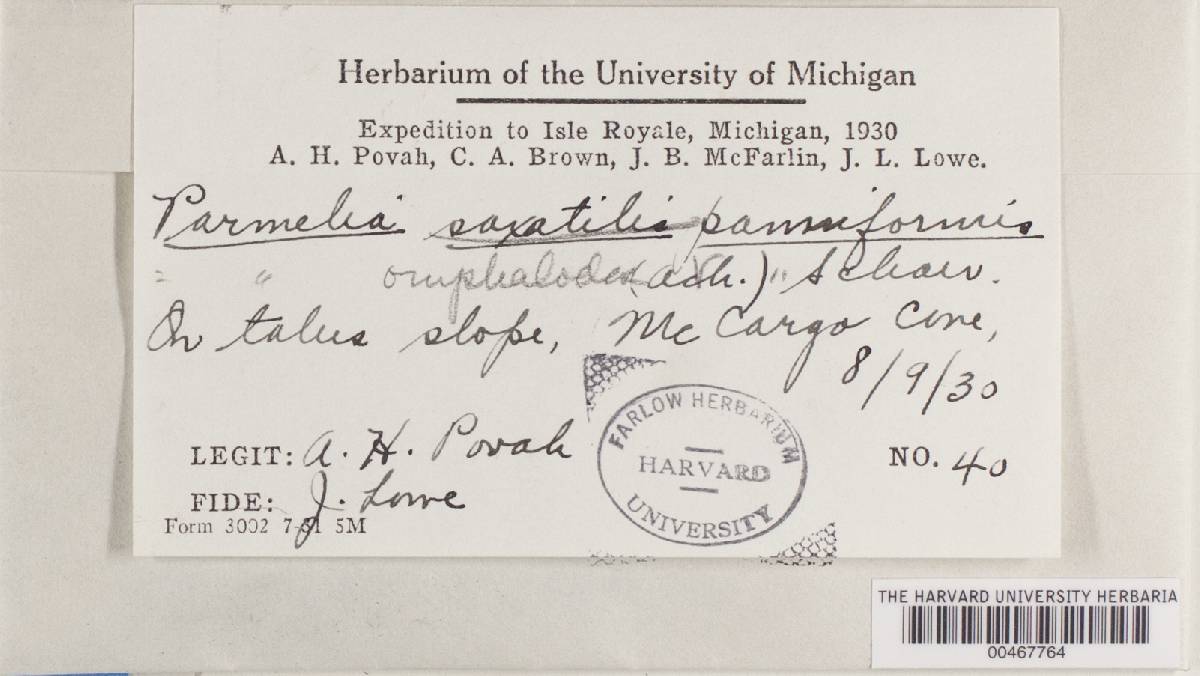 Herbarium of the University of Michigan
Expedition to Isle Royale, Michigan, 1930
A. H. Povah, C. A. Brown, J. B. McFarlin, J. L. Lowe.
Parmelia saxatilis panniformis
" " omphalodes (Ach.) " Schaer.
On talus slope, McCargo Cove,
8/9/30
LEGIT: A. H. Povah
NO. 40
FIDE: J. Lowe
Form 3002 7-31 5M
FARLOW HERBARIUM
HARVARD
UNIVERSITY
THE HARVARD UNIVERSITY HERBARIA
00467764